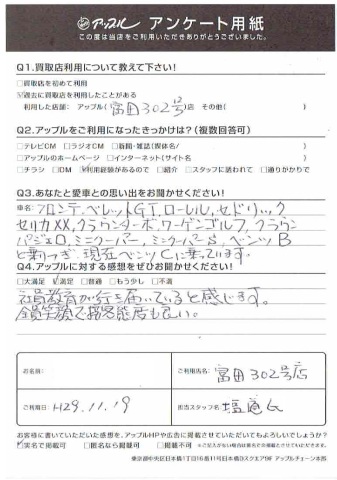 アップル アンケート用紙
この度は当店をご利用いただきありがとうございました。
Q1.買取店利用について教えて下さい!
□買取店を初めて利用
☑過去に買取店を利用したことがある
利用した店舗: アップル( 富田302号 )店 その他( )
Q2.アップルをご利用になったきっかけは?(複数回答可)
□テレビCM □ラジオCM □新聞・雑誌(媒体名/ )
□アップルのホームページ □インターネット(サイト名 )
□チラシ □DM ☑利用経験があるので □紹介 □スタッフに誘われて □通りがかりで
Q3.あなたと愛車との思い出をお聞かせください!
車名: フロンテ、ベレットGT、ローレル、セドリック
セリカXX、クラウンターボ、ワーゲンゴルフ、クラウン
パジェロ、ミニクーパー、ミニクーパーS、ベンツB
と乗りつぎ、現在ベンツCに乗っています。
Q4.アップルに対する感想をぜひお聞かせください!
□大満足 ☑満足 □普通 □もう少し □不満
社員教育が行き届いていると感じます。
全員笑顔で接客態度も良い。
お名前:
ご利用店名: 富田302号店
ご利用日: H29.11.19
担当スタッフ名:
お客様に書いていただいた感想を、アップルHPや広告に掲載させていただいてもよろしいでしょうか?
☑実名で掲載可 □匿名なら掲載可 □不可
東京都中央区日本橋1丁目16番11号日本橋Dスクエア9F アップルチェーン本部